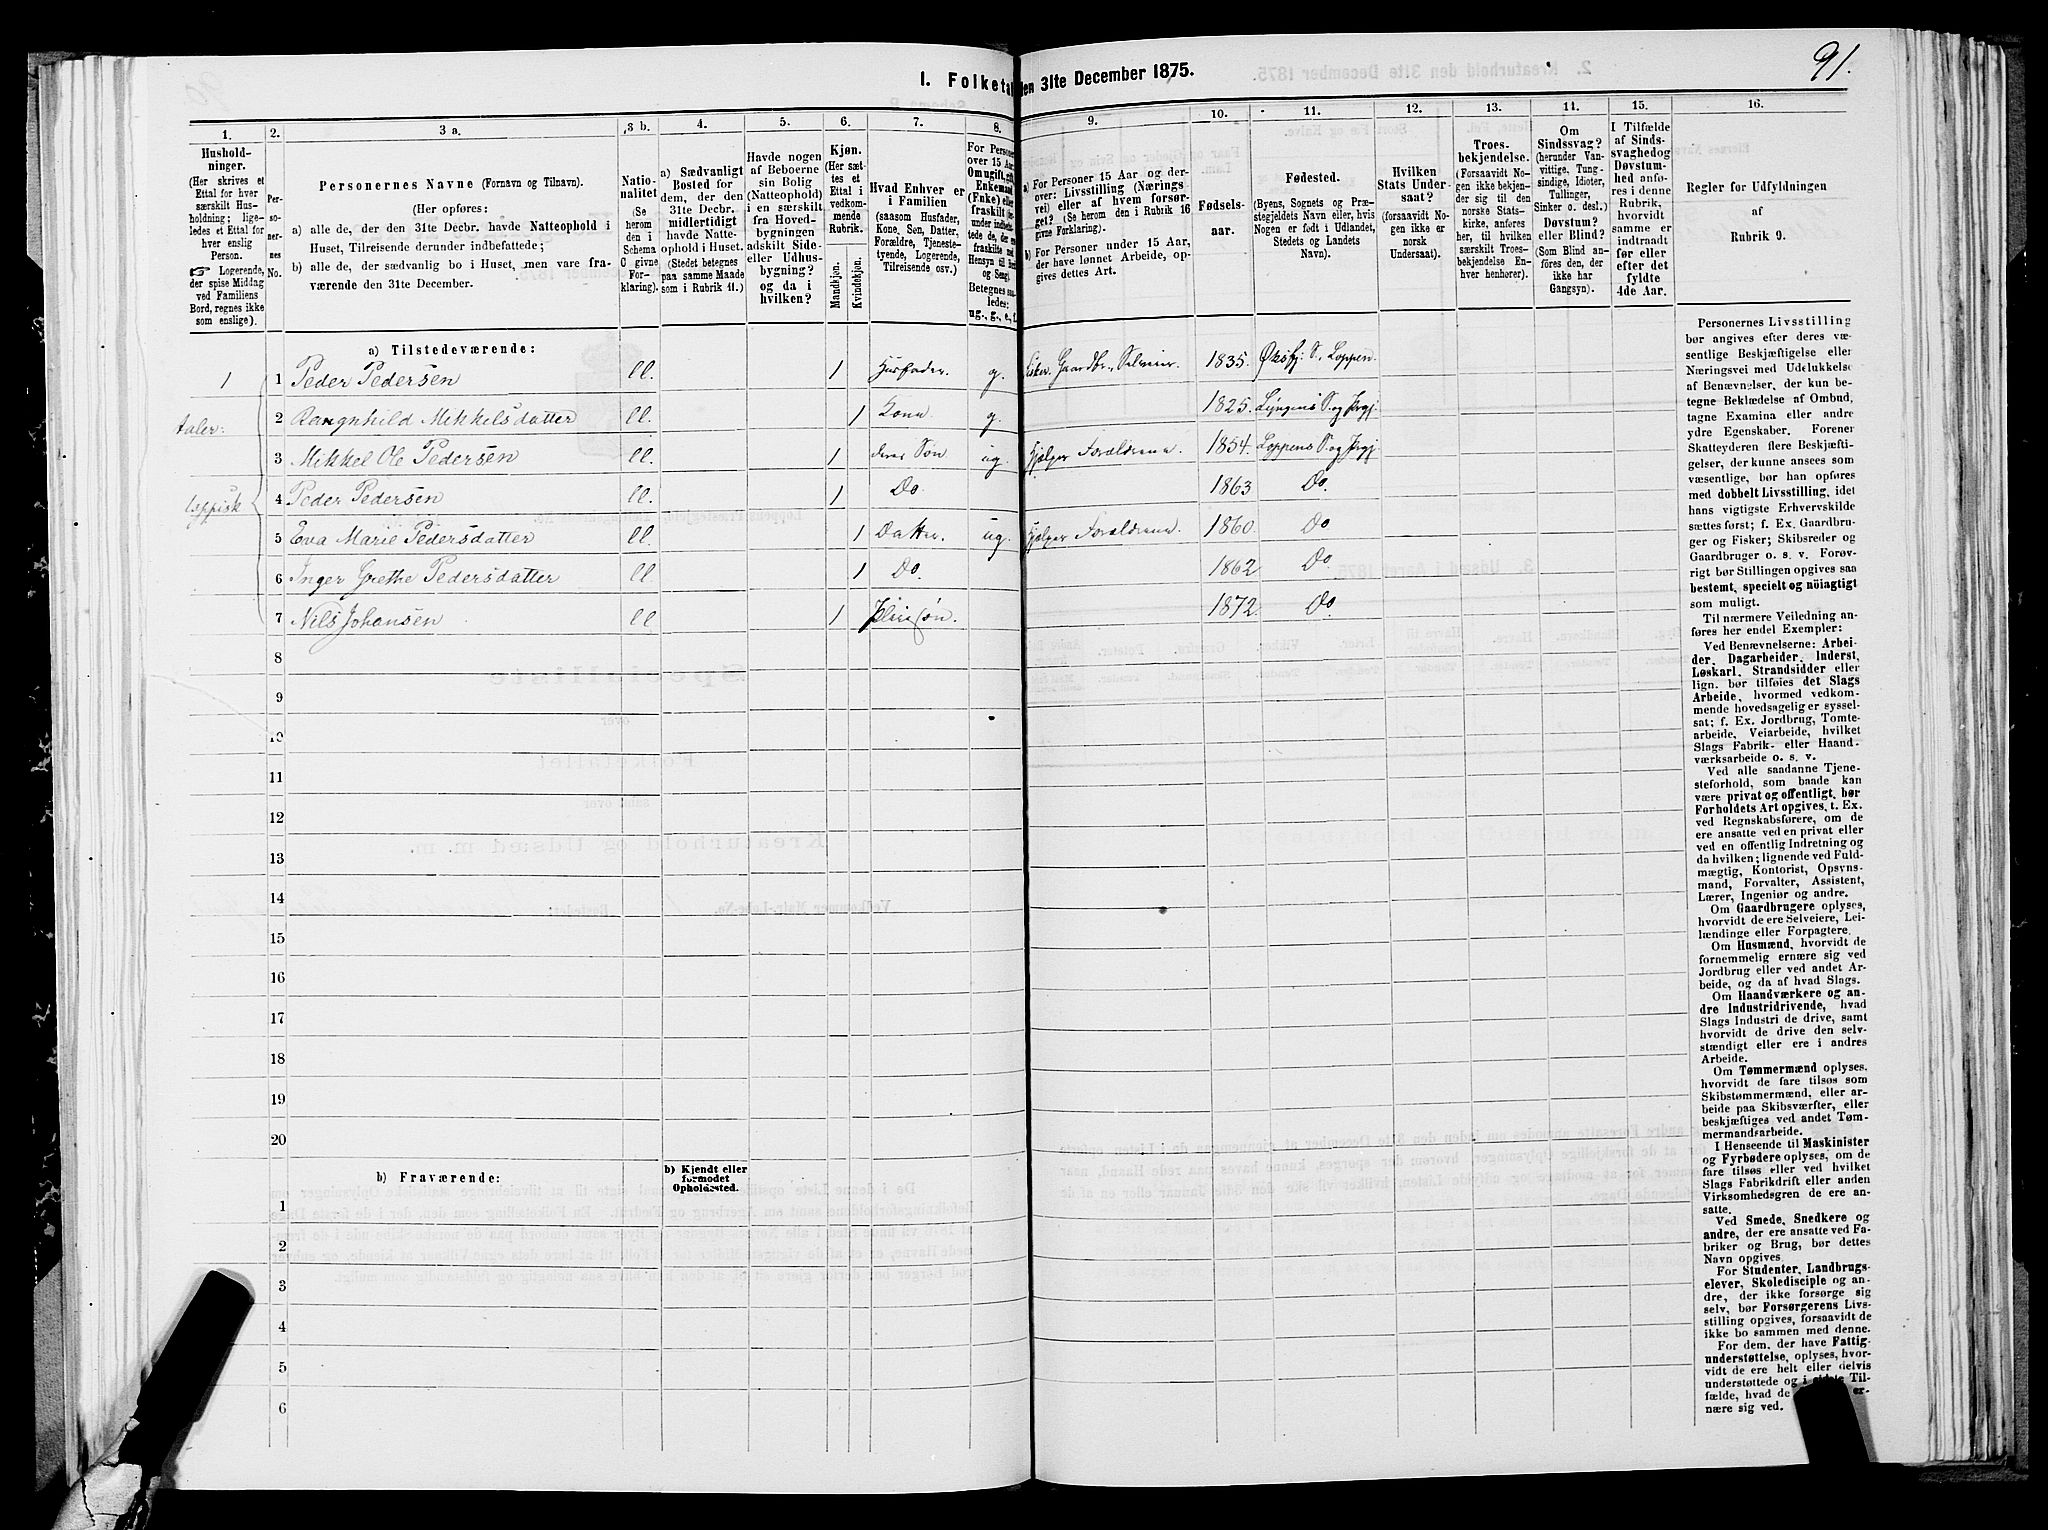 91.
1. Folketal den 31te December 1875.
1. 2. 3 a. 3 b. 4. 5. 6. 7. 8. 9. 10. 11. 12. 13. 14. 15. 16.
Hushold-
ninger.
(Her skrives et
Ettal for hver
særskilt Hus-
holdning; lige-
ledes et Ettal for
hver enslig
Person.
☞ Logerende,
der spise Middag
ved Familiens
Bord, regnes ikke
som enslige).
Per-
so-
ner-
nes
No.
Personernes Navne (Fornavn og Tilnavn).
(Her opføres:
a) alle de, der den 31te Decbr. havde Natteophold i
Huset, Tilreisende derunder indbefattede;
b) alle de, der sædvanlig bo i Huset, men vare fra-
værende den 31te December.
Natio-
nalitet
(Se
herom
den i
Schema
C givne
For-
klaring).
a) Sædvanligt
Bosted for
dem, der den
31te Decbr.
midlertidigt
havde Natte-
ophold i Huset.
(Stedet betegnes
paa samme Maade
som i Rubrik 11.)
Havde nogen
af Beboerne
sin Bolig
(Natteophold)
i en særskilt
fra Hoved-
bygningen
adskilt Side-
eller Udhus-
bygning?
og da i
hvilken?
Kjøn.
(Her sæt-
tes et
Ettal i
vedkom-
mende
Rubrik.
Mandkjøn.
Kvindekjøn.
Hvad Enhver er
i Familien
(saasom Husfader,
Kone, Søn, Datter,
Forældre, Tjeneste-
tyende, Logerende,
Tilreisende osv.)
For Personer
over 15 Aar:
Om ugift, gift,
Enkemand
(Enke) eller
fraskilt
Betegnes saa-
ledes:
ug., g., e., f.
a) For Personer 15 Aar og der-
over: Livsstilling (Nærings-
vei) eller af hvem forsør-
get? (Se herom den i Rubrik 16
givne Forklaring).
b) For Personer under 15 Aar,
der have lønnet Arbeide, op-
gives dettes Art.
Fødsels-
aar.
Fødested.
(Byens, Sognets og Præ-
stegjeldets Navn eller, hvis
Nogen er født i Udlandet,
Stedets og Landets
Navn).
Hvilken
Stats Under-
saat?
(forsaavidt No-
gen ikke er
norsk
Undersaat).
Troes-
bekjendelse.
(Forsaavidt No-
gen ikke bekjen-
der sig til den
norske Stats-
kirke, anføres
her, til hvilken
særskilt Troes-
bekjendelse En-
hver henhører).
Om
Sindssvag?
(herunder Van-
vittige, Tung-
sindige, Idioter,
Tullinger,
Sinker o. desl.)
Døvstum?
eller Blind?
(Som Blind an-
føres den, der
ikke har
Gangsyn).
I Tilfælde
af Sinds-
svaghed og
Døvstum-
hed anfø-
res i denne
Rubrik,
hvorvidt
samme er
indtraadt
før eller
efter det
fyldte
4de Aar.
Regler for Udfyldningen
af
Rubrik 9.
a) Tilstedeværende:
1 1 Peder Pedersen ll. 1 Husfader. g. Fisker. Gaardbr., Selveier. 1835. Øksfj. S., Loppen.
taler: 2 Rangnhild Mikkelsdatter ll. 1 Kone g. 1825. Lyngens S. og Prgj.
3 Mikkel Ole Pedersen ll. 1 deres Søn ug. Hjælper Forældrene. 1854. Loppens S. og Prgj.
lappisk 4 Peder Pedersen ll. 1 Do. 1863 Do.
5 Eva Marie Pedersdatter ll. 1 Datter. ug. Hjælper Forældrene. 1860. Do
6 Inger Grethe Pedersdatter ll. 1 Do. 1862 Do.
7 Nils Johansen ll 1 Pleiesøn. 1872. Do
8
9
10
11
12
13
14
15
16
17
18
19
20
b) Fraværende:
b) Kjendt eller
formodet
Opholdsted.
1
2
3
4
5
6
Personernes Livsstilling
bør angives efter deres væ-
sentlige Beskjæftigelse eller
Næringsvei med Udelukkelse
af Benævnelser, der kun be-
tegne Beklædelse af Ombud,
tagne Examina eller andre
ydre Egenskaber. Forener
Skatteyderen flere Beskjæfti-
gelser, der kunne ansees som
væsentlige, bør han opføres
med dobbelt Livsstilling, idet
hans vigtigste Erhvervskilde
sættes først; f. Ex. Gaardbru-
ger og Fisker; Skibsreder og
Gaardbruger o. s. v. Forøv-
rigt bør Stillingen opgives saa
bestemt, specielt og nöiagtigt
som muligt.
Til nærmere Veiledning an-
føres her endel Exempler:
Ved Benævnelserne: Arbei-
der, Dagarbeider, Inderst,
Løskarl, Strandsidder eller
lign. bør tilføies det Slags
Arbeide, hvormed vedkom-
mende hovedsagelig er syssel-
sat; f. Ex. Jordbrug, Tomte-
arbeide, Veiarbeide, hvilket
Slags Fabrik- eller Haand-
værksarbeide o. s. v.
Ved alle saadanne Tjene-
steforhold, som baade kan
være privat og offentligt, bør
Forholdets Art opgives, t. Ex.
ved Regnskabsførere, om de
ere ansatte ved en privat eller
ved en offentlig Indretning og
da hvilken; lignende ved Fuld-
mægtig, Kontorist, Opsyns-
mand, Forvalter, Assistent,
Lærer, Ingeniør og andre.
Om Gaardbrugere oplyses,
hvorvidt de ere Selveiere, Lei-
lændinge eller Forpagtere.
Om Husmænd, hvorvidt de
fornemmelig ernære sig ved
Jordbrug eller ved andet Ar-
beide, og da af hvad Slags.
Om Haandværkere og an-
dre Industridrivende, hvad
Slags Industri de drive, samt
hvorvidt de drive den selv-
stændigt eller ere i andres
Arbeide.
Om Tømmermænd oplyses,
hvorvidt de fare tilsøs som
Skibstømmermænd, eller ar-
beide paa Skibsværfter, eller
beskjæftiges ved andet Tøm-
mermandsarbeide.
I Henseende til Maskinister
og Fyrbødere oplyses, om de
fare tilsøs eller ved hvilket
Slags Fabrikdrift eller anden
Virksomhedsgren de ere an-
satte.
Ved Smede, Snedkere og
andre, der ere ansatte ved Fa-
briker og Brug, bør dettes
Navn opgives
For Studenter, Landbrugs-
elever, Skoledisciple og an-
dre, der ikke forsørge sig
selv, bør Forsørgerens Livs-
stilling opgives, forsaavidt de
ikke bo sammen med denne.
For dem, der have Fattig-
understøttelse, oplyses, hvor-
vidt de ere helt eller delvis
understøttede og i sidste Til-
fælde, hvad de er-
nære sig ved.